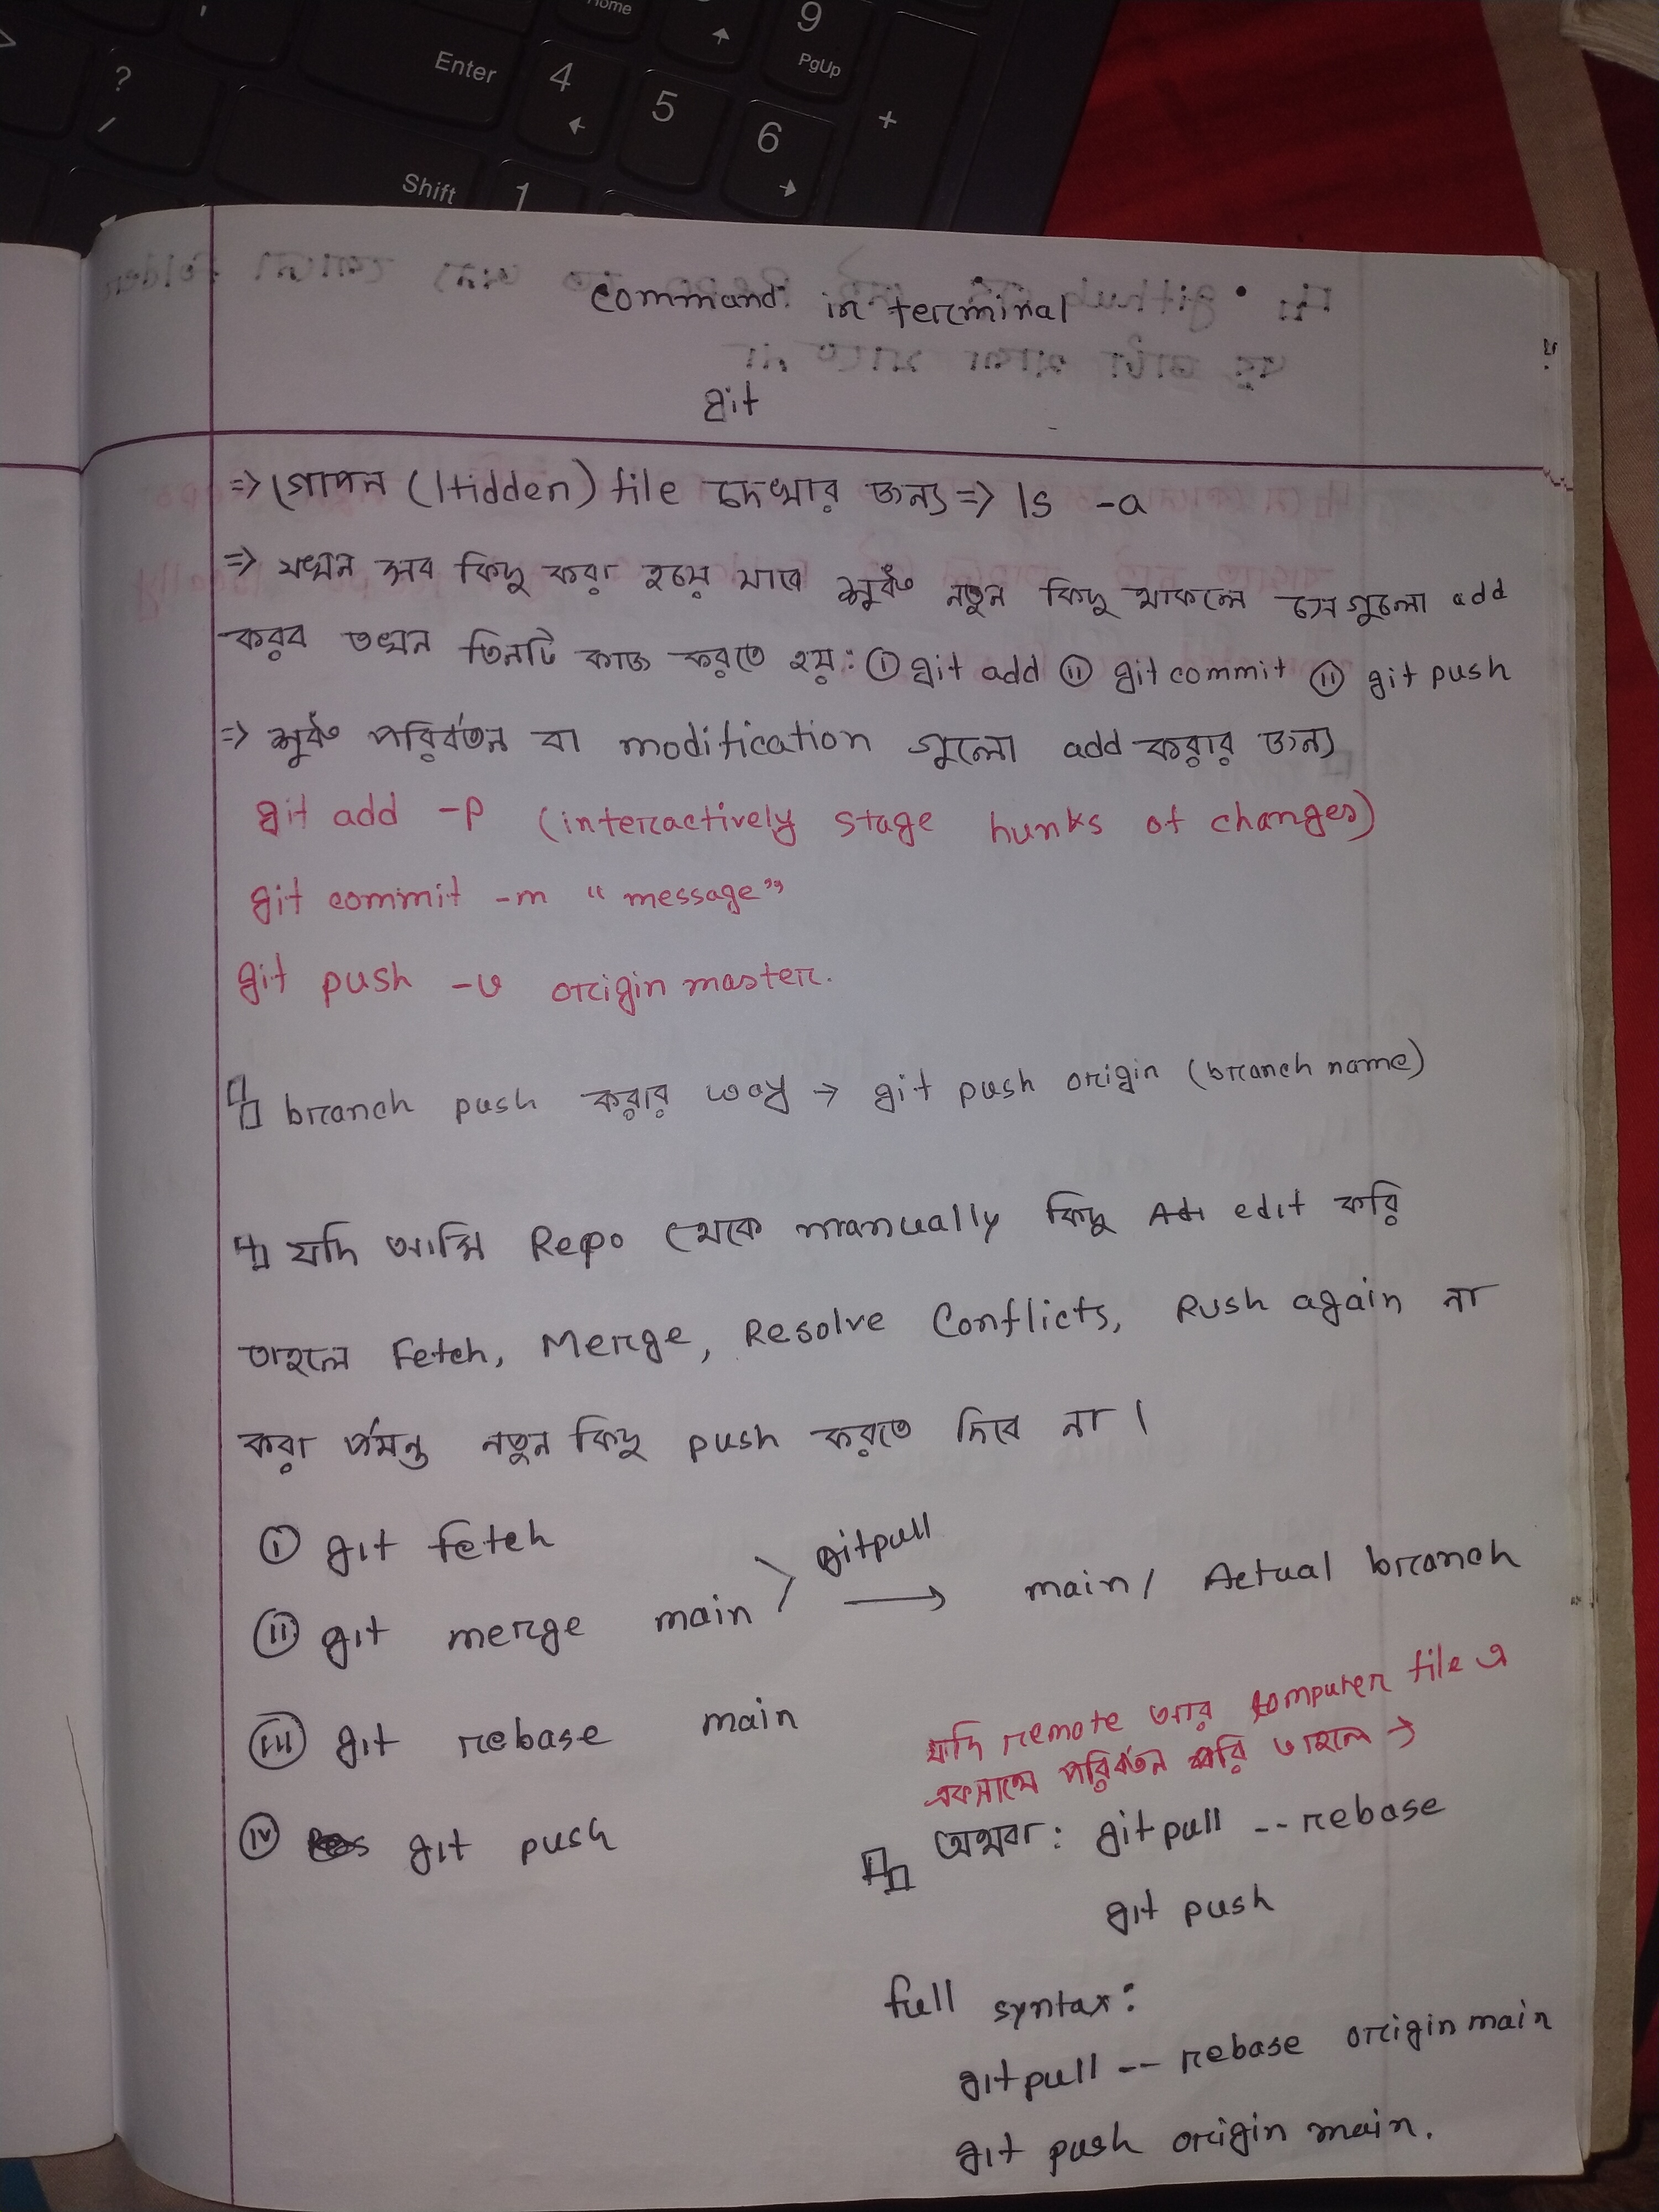 Home
9
PgUp
Enter
4
5
6
+
?
/
Shift
1
command in terminal
git
=> গোপন (Hidden) file দেখার জন্য => ls -a
=> যখন সব কিছু করা হয়ে যাবে সুধু নতুন কিছু থাকলে সেগুলো add
করব তখন তিনটি কাজ করতে হয়: (i) git add (ii) git commit (ii) git push
=> সুধু পরিবর্তন বা modification গুলো add করার জন্য
git add -p (interactively stage hunks of changes)
git commit -m "message"
git push -u origin master.
branch push করার way → git push origin (branch name)
যদি আমি Repo থেকে manually কিছু edit করি
তাহলে Fetch, Merge, Resolve Conflicts, Push again না
করা পর্যন্ত নতুন কিছু push করতে দিবে না।
(i) git fetch
(ii) git merge main > gitpull → main/ Actual branch
(iii) git rebase main
(iv) git push
যদি remote আর computer file এ
একসাথে পরিবর্তন করি তাহলে →
অথবা: gitpull --rebase
git push
full syntax:
gitpull -- rebase origin main
git push origin main.